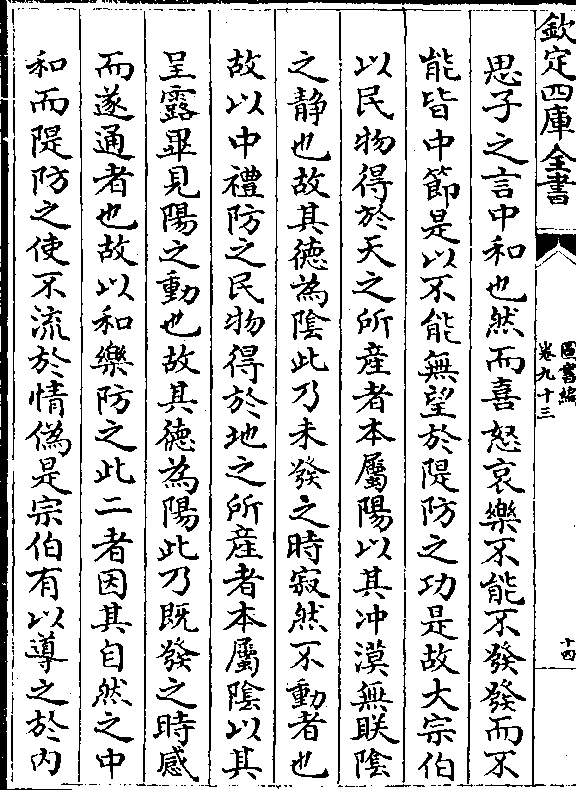 欽定四庫全書
圖書編
卷九十三
十四
思子之言中和也然而喜怒哀樂不能不發發而不
能皆中節是以不能無望於隄防之功是故大宗伯
以民物得於天之所産者本屬陽以其冲漠無眹陰
之静也故其徳為陰此乃未發之時寂然不動者也
故以中禮防之民物得於地之所産者本屬陰以其
呈露畢見陽之動也故其徳為陽此乃既發之時感
而遂通者也故以和樂防之此二者因其自然之中
和而隄防之使不流於情偽是宗伯有以導之於内